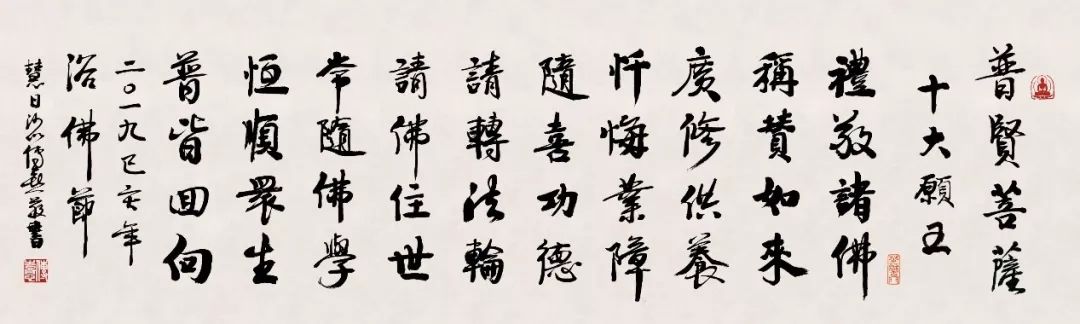 普賢菩薩
十大願王
禮敬諸佛
稱贊如來
廣修供養
懺悔業障
隨喜功德
請轉法輪
請佛住世
常隨佛學
恒順眾生
普皆回向
二〇一九己亥年
浴佛節
慧日沙門傳熹敬書